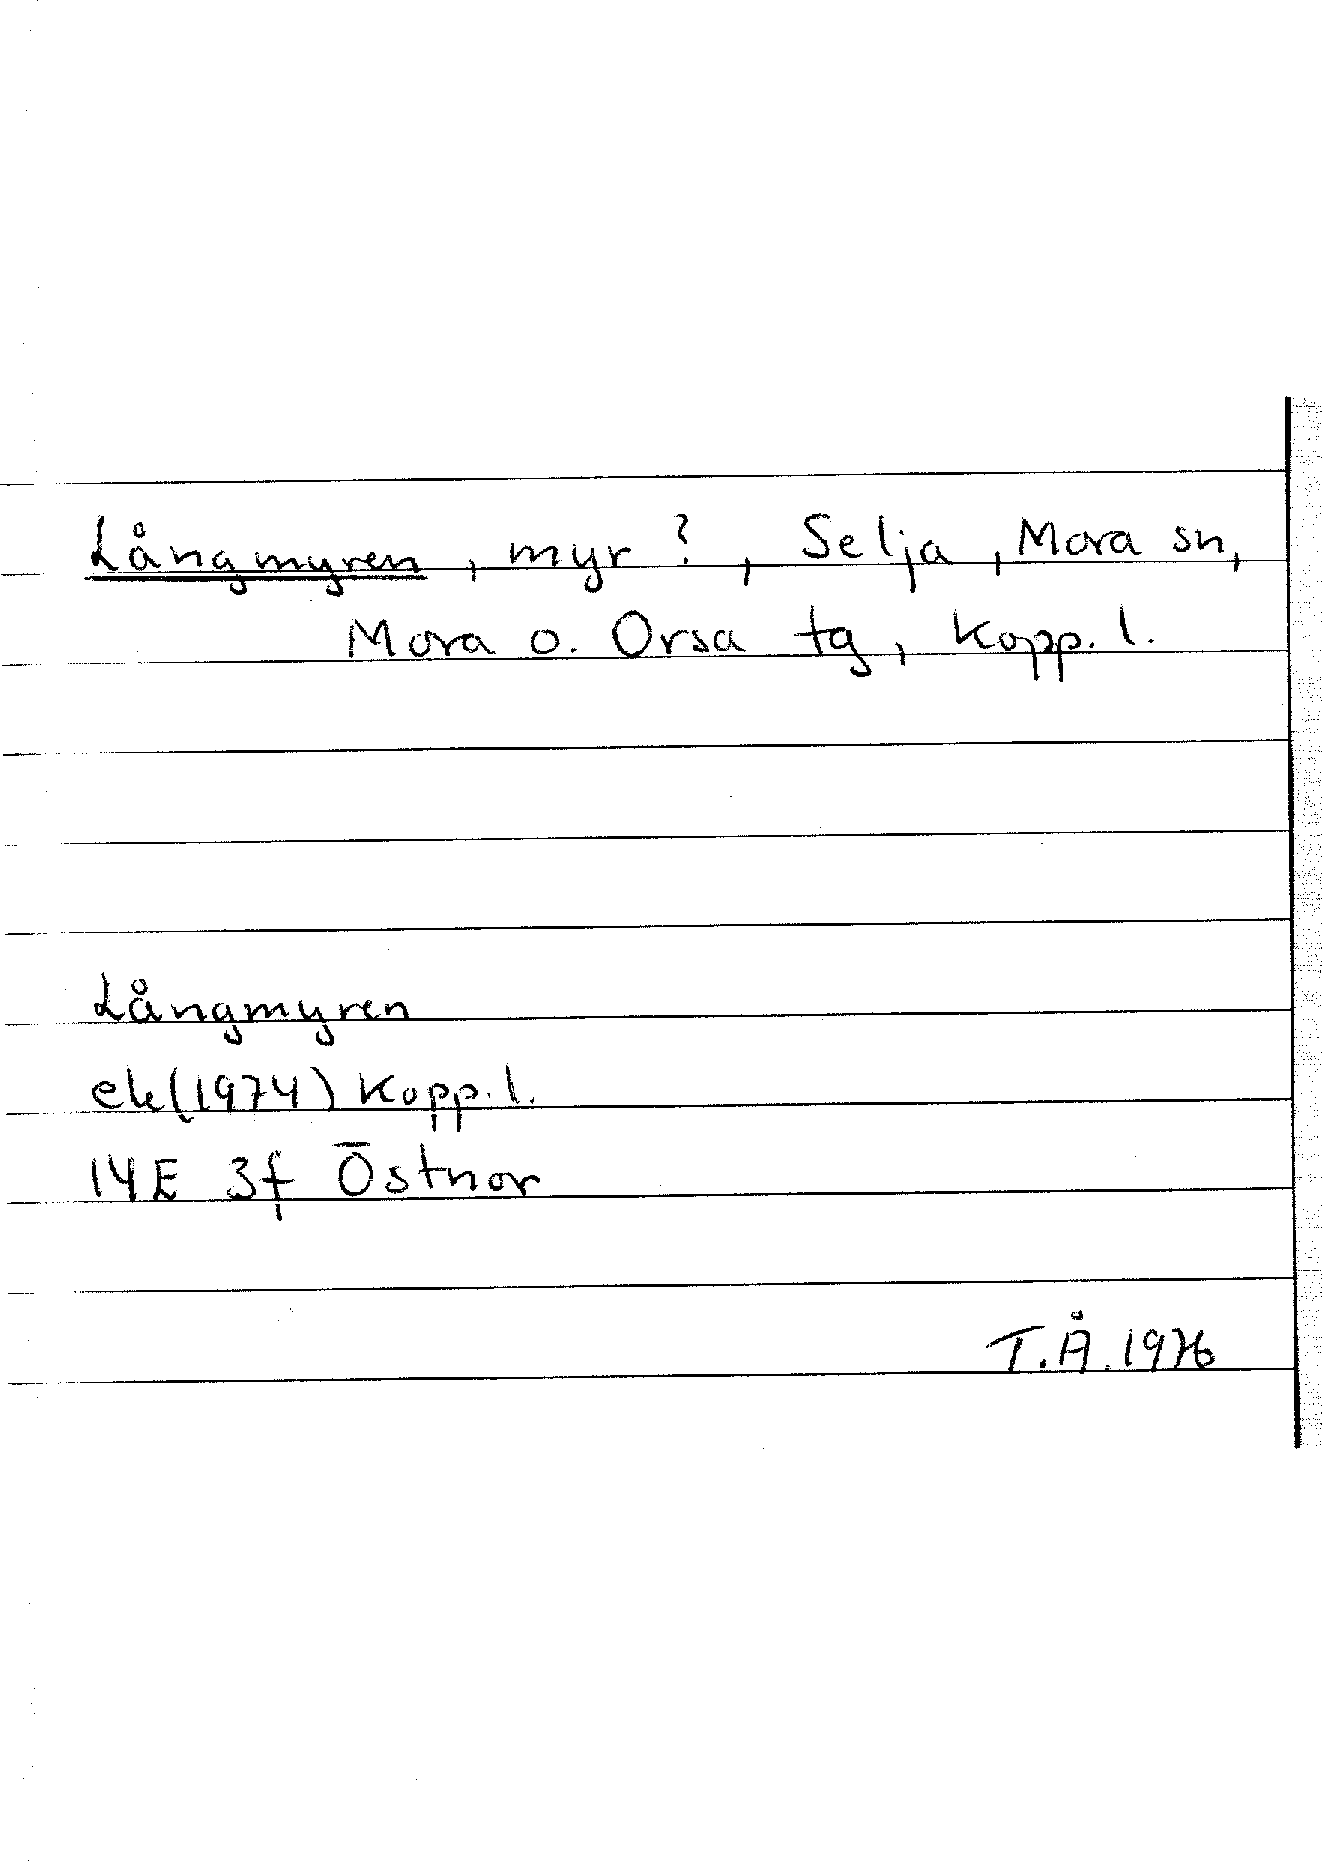 Långmyren, myr ?, Selja, Mora sn,
Mora o. Orsa tg, Kopp. l.
Långmyren
ek(1974) Kopp. l.
14E 3f Östnor
T.Å. 1976